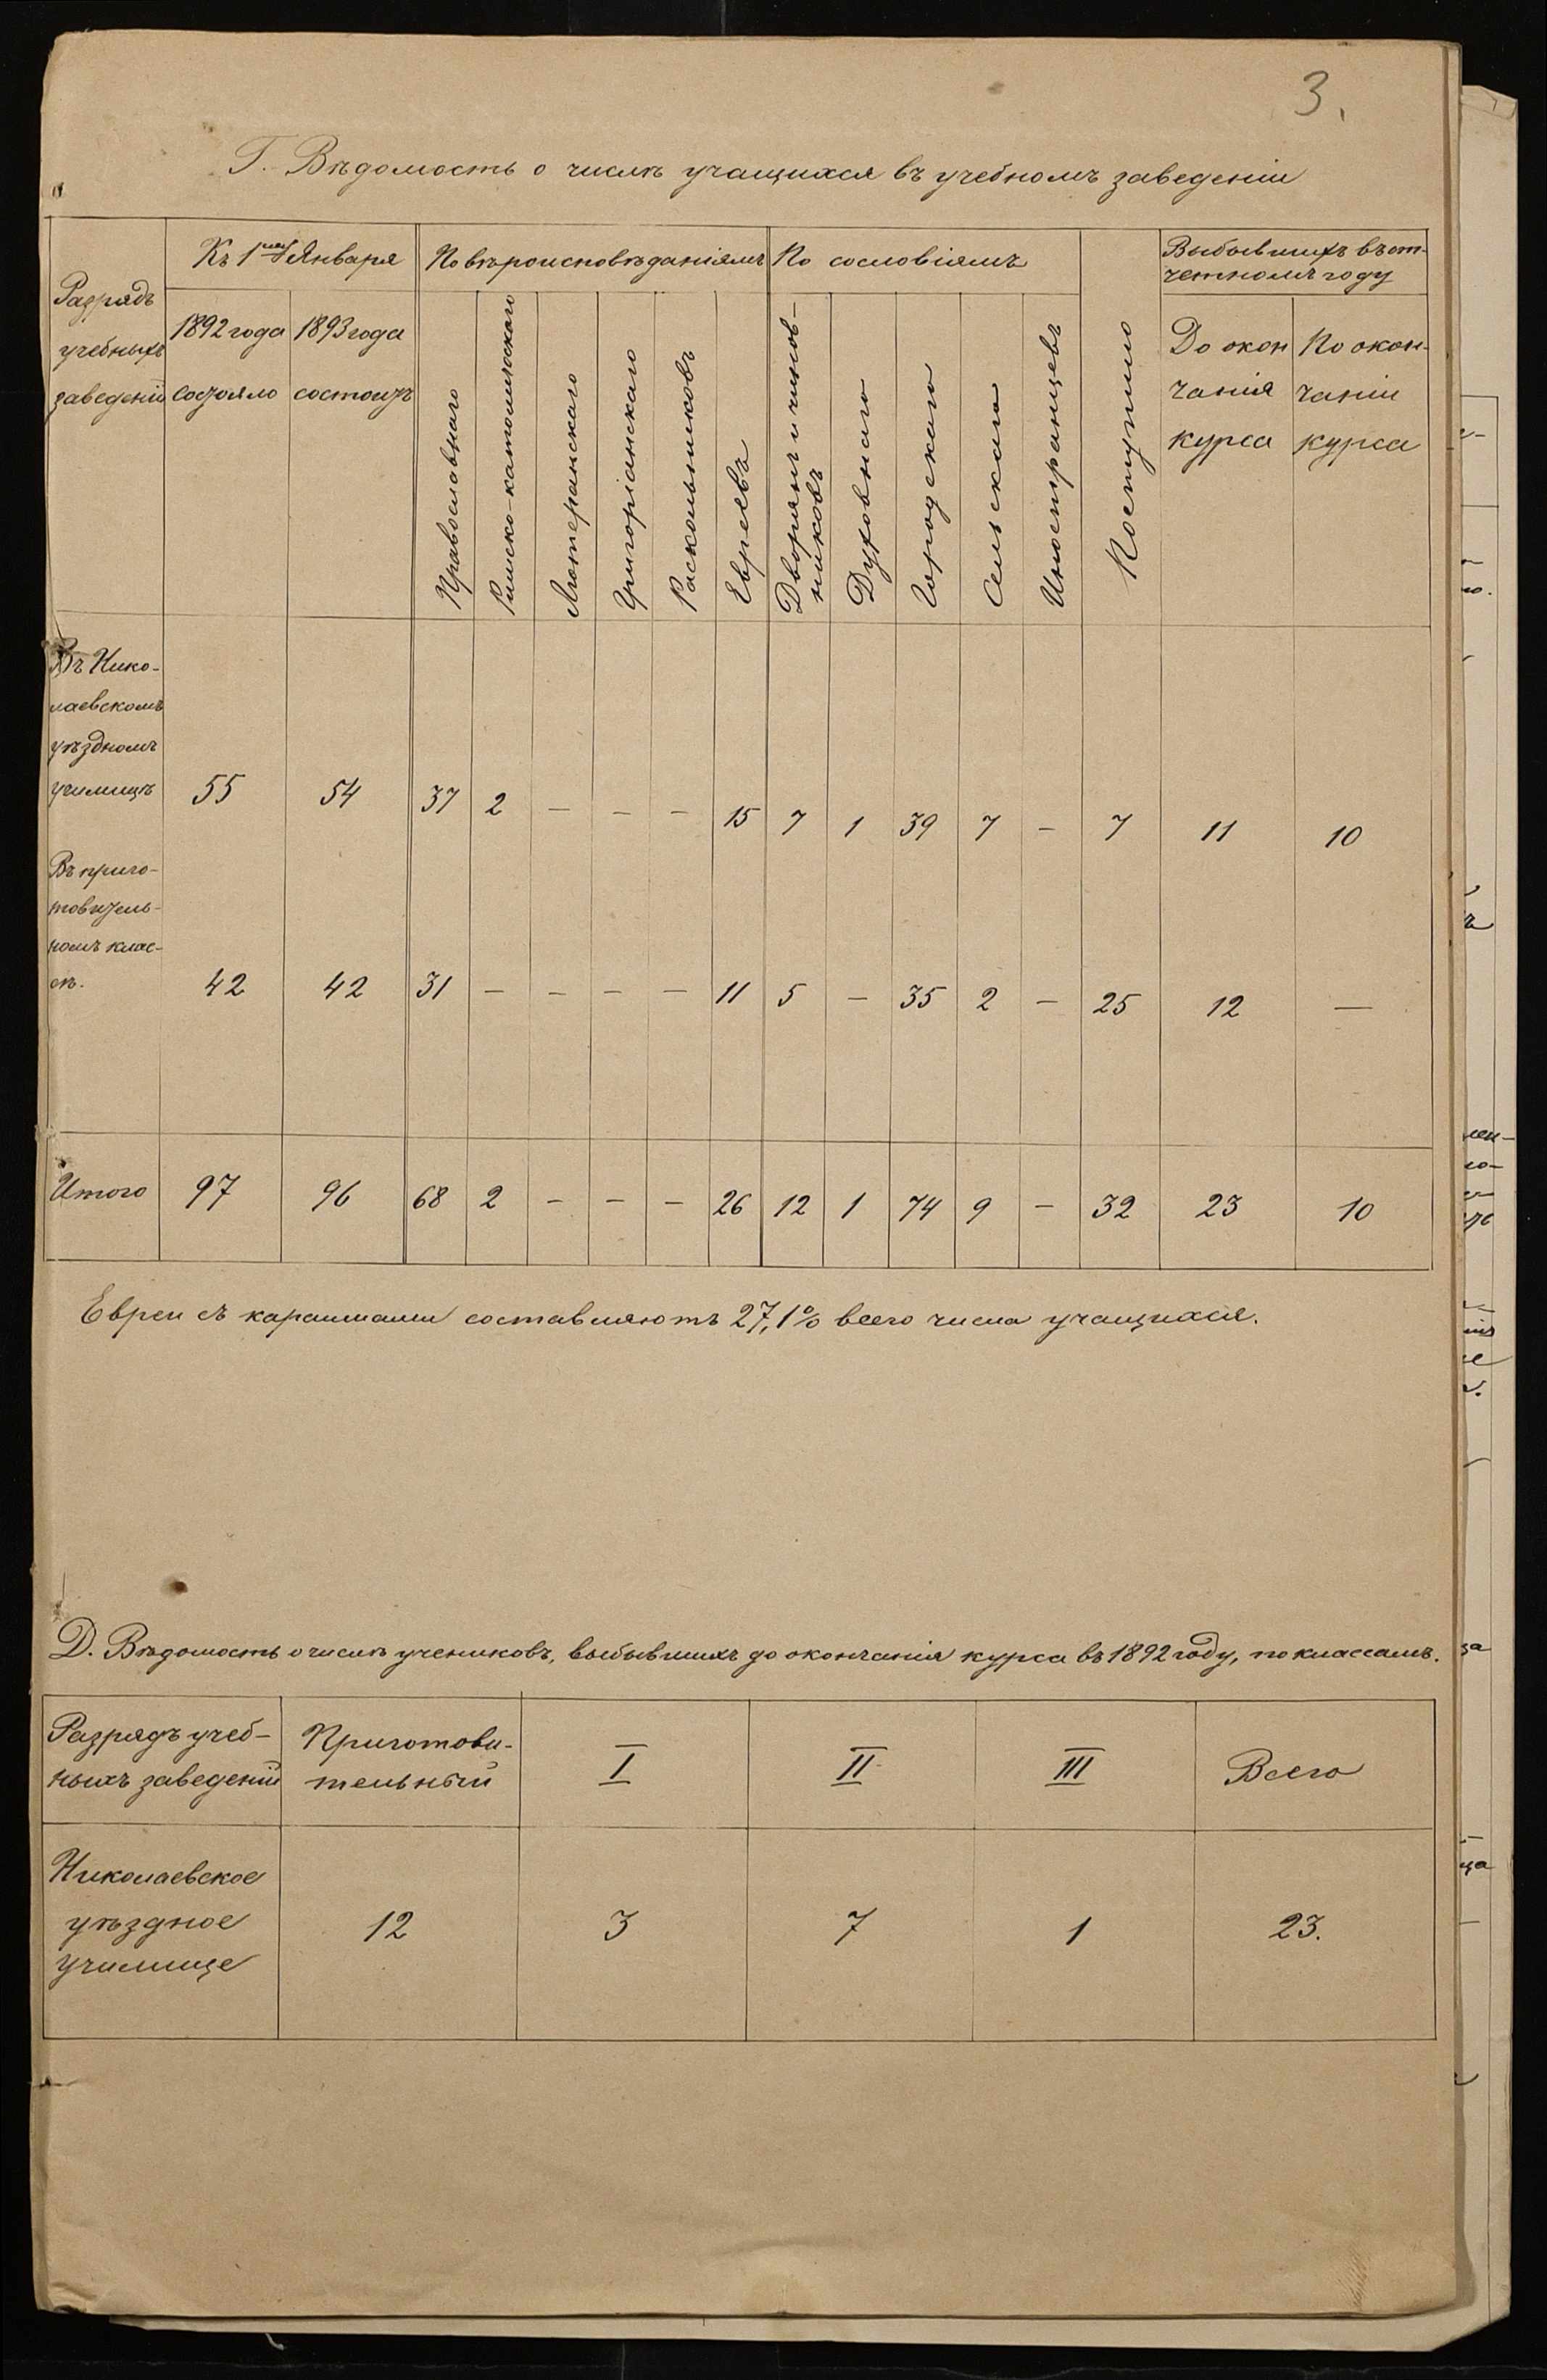 3.
Г. Вѣдомость о числѣ учащихся въ учебномъ заведеніи
Разрядъ
учебныхъ
заведеній
Къ 1му Января
1892 года
состояло
1893 года
состоитъ
По вѣроисповѣданіямъ
Православнаго
Римско-католическаго
Лютеранскаго
Григоріанскаго
Раскольниковъ
Евреевъ
По сословіямъ
Дворянъ и чинов-
никовъ
Духовнаго
Городскаго
Сельскаго
Иностранцевъ
Поступило
Выбывшихъ въ от-
четномъ году
До окон
чанія
курса
По окон-
чаніи
курса
Въ Нико-
лаевскомъ
уѣздномъ
училищѣ 55 54 37 2 — — — 15 7 1 39 7 — 7 11 10
Въ приго-
товитель-
номъ клас-
сѣ. 42 42 31 — — — — 11 5 — 35 2 — 25 12 —
Итого 97 96 68 2 — — — 26 12 1 74 9 — 32 23 10
Евреи съ караимами составляютъ 27,1% всего числа учащихся.
Д. Вѣдомость о числѣ учениковъ, выбывшихъ до окончанія курса въ 1892 году, по классамъ.
Разрядъ учеб-
ныхъ заведеній
Приготови-
тельный
I
II
III
Всего
Николаевское
уѣздное
училище
12 3 7 1 23.